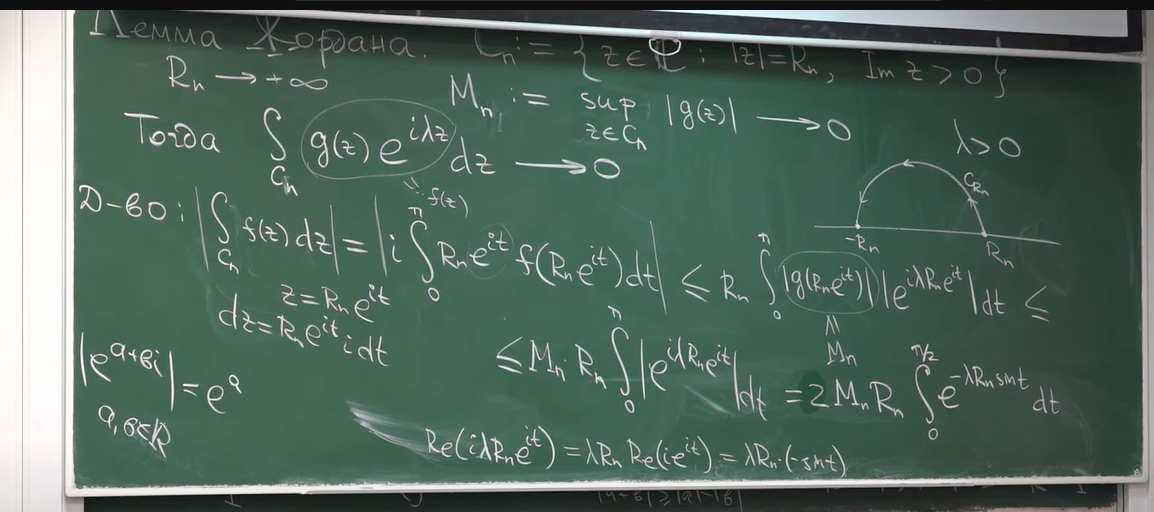 Лемма Жордана. Cₙ := {z ∈ ℂ : |z| = Rₙ, Im z > 0}
Rₙ → +∞ Mₙ := sup_{z∈Cₙ} |g(z)| → 0
λ > 0
Тогда ∫_{Cₙ} g(z) e^{iλz} dz → 0
f(z)
C_{Rₙ}
-Rₙ Rₙ
Д-во: |∫_{Cₙ} f(z) dz| = |i ∫_0^π Rₙ e^{it} f(Rₙ e^{it}) dt| ≤ Rₙ ∫_0^π |g(Rₙ e^{it})| |e^{iλRₙ e^{it}}| dt ≤
z = Rₙ e^{it}
dz = Rₙ e^{it} i dt
Mₙ
|e^{a+bi}| = e^a
a, b ∈ ℝ
≤ Mₙ Rₙ ∫_0^π |e^{iλRₙ e^{it}}| dt = 2 Mₙ Rₙ ∫_0^{π/2} e^{-λRₙ sin t} dt
Re(iλRₙ e^{it}) = λRₙ Re(i e^{it}) = λRₙ · (-sin t)